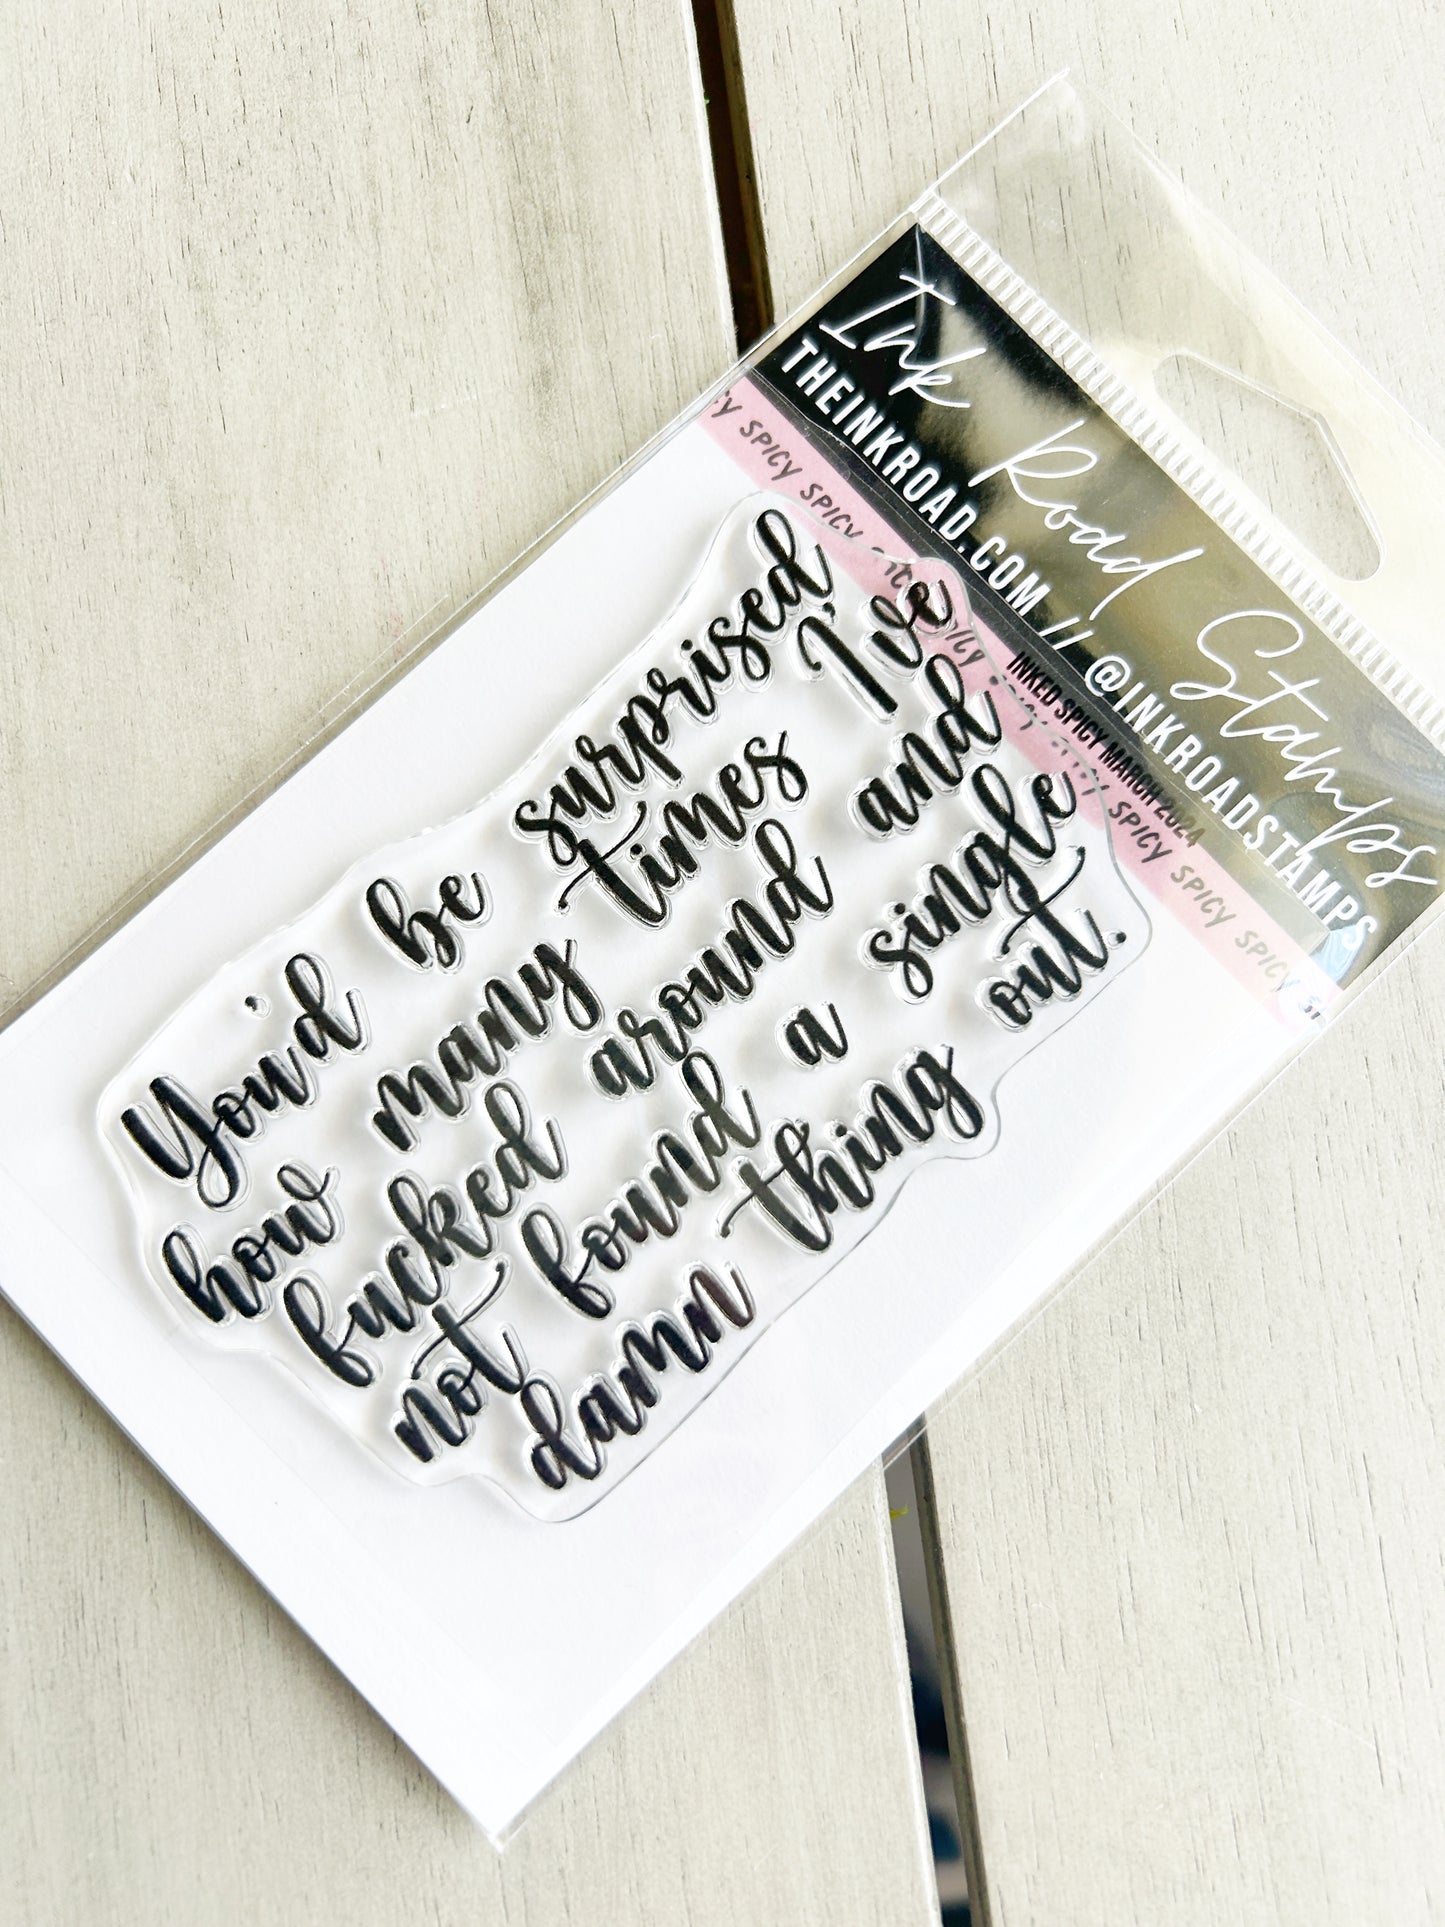 Ink Road Stamps
THEINKROAD.COM // @INKROADSTAMPS
INKED SPICY MARCH 2024
SPICY SPICY SPICY SPICY SPICY SPICY SPICY
You'd be surprised
how many times I've
fucked around and
not found a single
damn thing out.